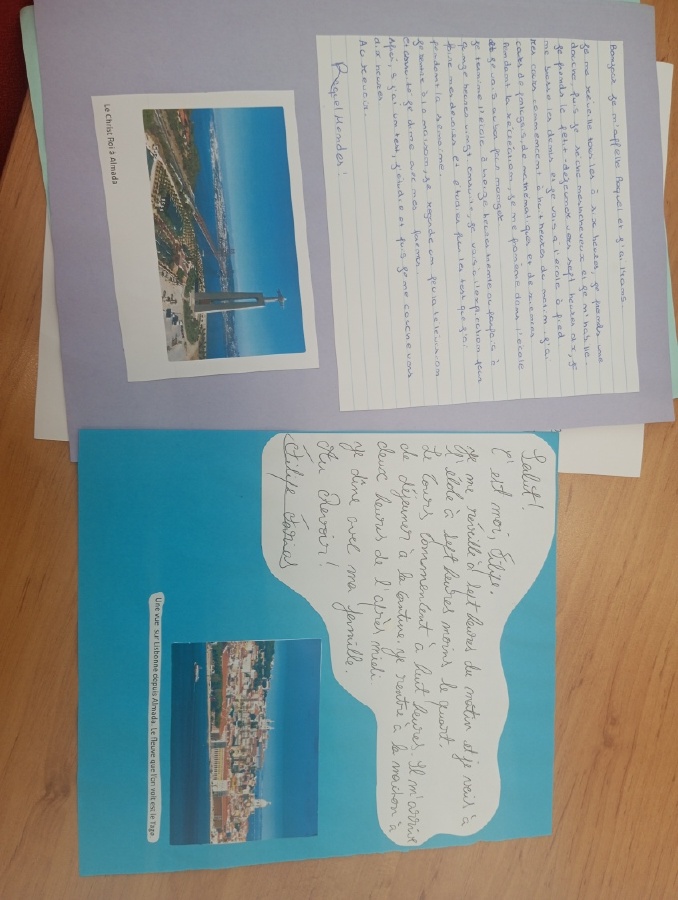 Bonjour je m'appelle Raquel et j'ai 12 ans.
Je me réveille tous les à six heures, je prends une
douche, puis je sèche mes cheveux et je m'habille
je prends le petit-déjeuner vers sept heures dix, je
me brosse les dents et je vais à l'école à pied
mes cours commencent à huit heures du matin. J'ai
cours de portugais, de mathématiques et de sciences
Pendant la récréation, je me promène dans l'école
et je vais au bar pour manger
je termine l'école à treize heures trente ou parfois à
quinze heures vingt ensuite, je vais à l'explication pour
faire mes devoirs et étudier pour les test que j'ai
pendant la semaine.
je rentre à la maison, je regarde un peu la télévision
et ensuite je dîne avec mes parents
Après, s'j'ai un test, j'étudie et puis je me couche vers
dix heures.
Au revoir.
Raquel Mendes!
Le Christ Roi à Almada
Salut!
C'est moi, Filipe.
Je me réveille à sept heures du matin et je vais à
l'école à sept heures moins le quart.
Le cours commencent à huit heures. Il m'arrive
de déjeuner à la cantine. je rentre à la maison à
deux heures de l'après midi.
Je dîne avec ma famille.
Au Revoir!
Filipe
Une vue sur Lisbonne depuis Almada. Le fleuve que l'on voit est le Tage